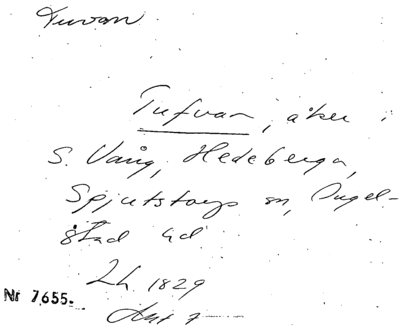 Tuvan
Tufvan, åker i
S. Vång, Hedeberga,
Spjutstorps sn, Ingel-
stad hd
Lh. 1829
Nr 7655.
Akt 7